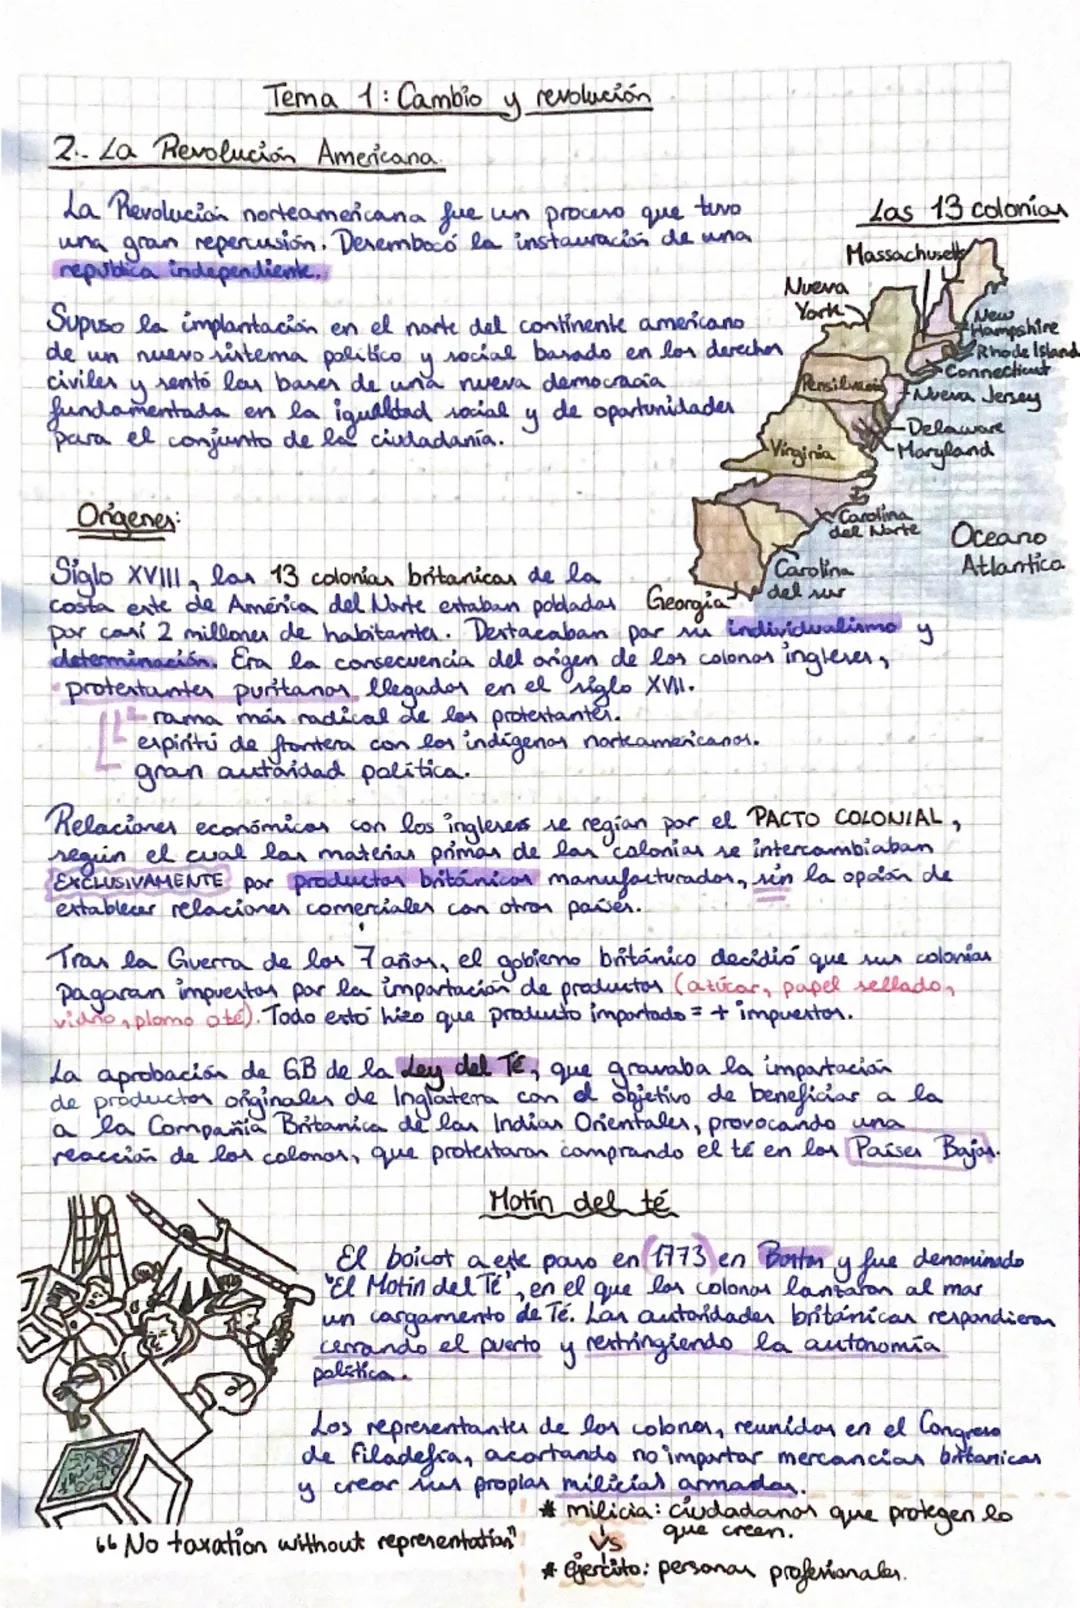 Tema 1: Cambio y revolución
2.- La Revolución Americana.
La Revolución norteamericana fue un proceso que tuvo
una gran repercusión. Desembocó la instauración de una
república independiente.
Supuso la implantación en el norte del continente americano
de un nuevo sistema político y social basado en los derechos
civiles y sentó las bases de una nueva democracia
fundamentada en la igualdad social y de oportunidades
para el conjunto de la ciudadanía.
Las 13 colonias
Massachusetts
Nueva
York
New
Hampshire
Rhode Island
Connecticut
Pensilvania
Nueva Jersey
Delaware
Maryland
Virginia
Carolina
del Norte
Oceano
Atlantica
Carolina
del sur
Georgia
Orígenes:
Siglo XVIII, las 13 colonias britanicas de la
costa este de América del Norte estaban pobladas
por casi 2 millones de habitantes. Destacaban por su individualismo y
determinación. Era la consecuencia del origen de los colonos ingleses,
protestantes puritanos llegados en el siglo XVII.
rama más radical de los protestantes.
espíritu de frontera con los indígenas norteamericanos.
gran autoridad política.
Relaciones económicas con los ingleses se regian por el PACTO COLONIAL,
según el cual las materias primas de las colonias se intercambiaban
EXCLUSIVAMENTE por productos británicos manufacturados, sin la opción de
establecer relaciones comerciales con otros países.
Tras la Guerra de los 7 años, el gobierno británico decidió que sus colonias
pagaran impuestos por la importación de productos (azúcar, papel sellado,
vidrio, plomo o té). Todo esto hizo que producto importado = + impuestos.
La aprobación de GB de la Ley del Té, que gravaba la importación
de productos originales de Inglaterra con el objetivo de beneficiar a la
a la Compañia Britanica de las Indias Orientales, provocando una
reacción de los colonos, que protestaron comprando el té en los Países Bajos.
Motín del té
El boicot a este paso en 1773 en Boston y fue denominado
"El Motín del Té", en el que los colonos lanzaron al mar
un cargamento de Té. Las autoridades británicas respondieron
cerrando el puerto y restringiendo la autonomía
política.
Los representantes de los colonos, reunidos en el Congreso
de Filadelfia, acortando no importar mercancias britanicas
y crear sus propias milicias armadas.
* milicia: ciudadanos que protegen lo
que creen.
vs
* ejercito: personas profesionales.
"No taxation without representation"